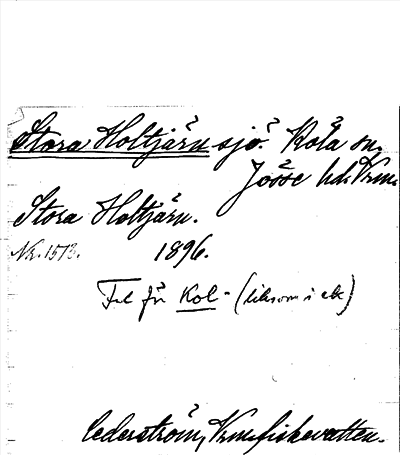 Stora Holtjärn sjö. Köla sn.
Jösse hd. Vrm.
Stora Holtjärn.
Nr. 1513. 1896.
Fel för Kol- (liksom i ek)
Cederström, Vrm. fiskevatten.